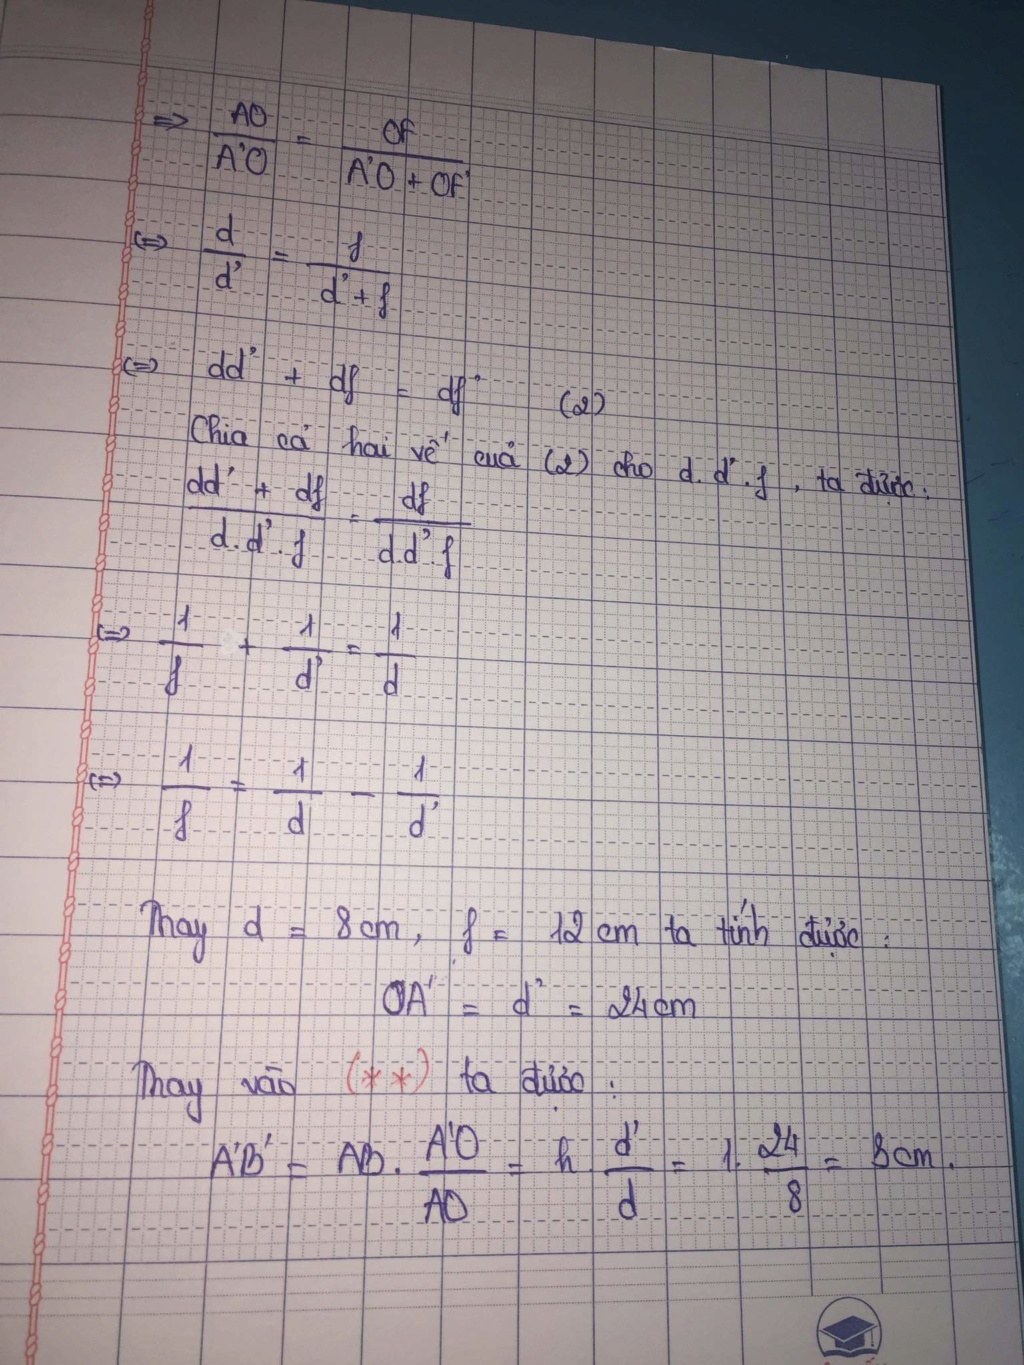 ⇒ AO/A'O = OF/(A'O + OF')
⇔ d/d' = f/(d' + f)
⇔ dd' + df = d'f (2)
Chia cả hai vế cuả (2) cho d.d'.f, ta được:
(dd' + df)/(d.d'.f) = df/(d.d'.f)
⇔ 1/f + 1/d' = 1/d
⇔ 1/f = 1/d - 1/d'
Thay d = 8cm, f = 12cm ta tính được:
OA' = d' = 24cm
Thay vào (**) ta được:
A'B' = AB. A'O/AO = h. d'/d = 1. 24/8 = 3cm.